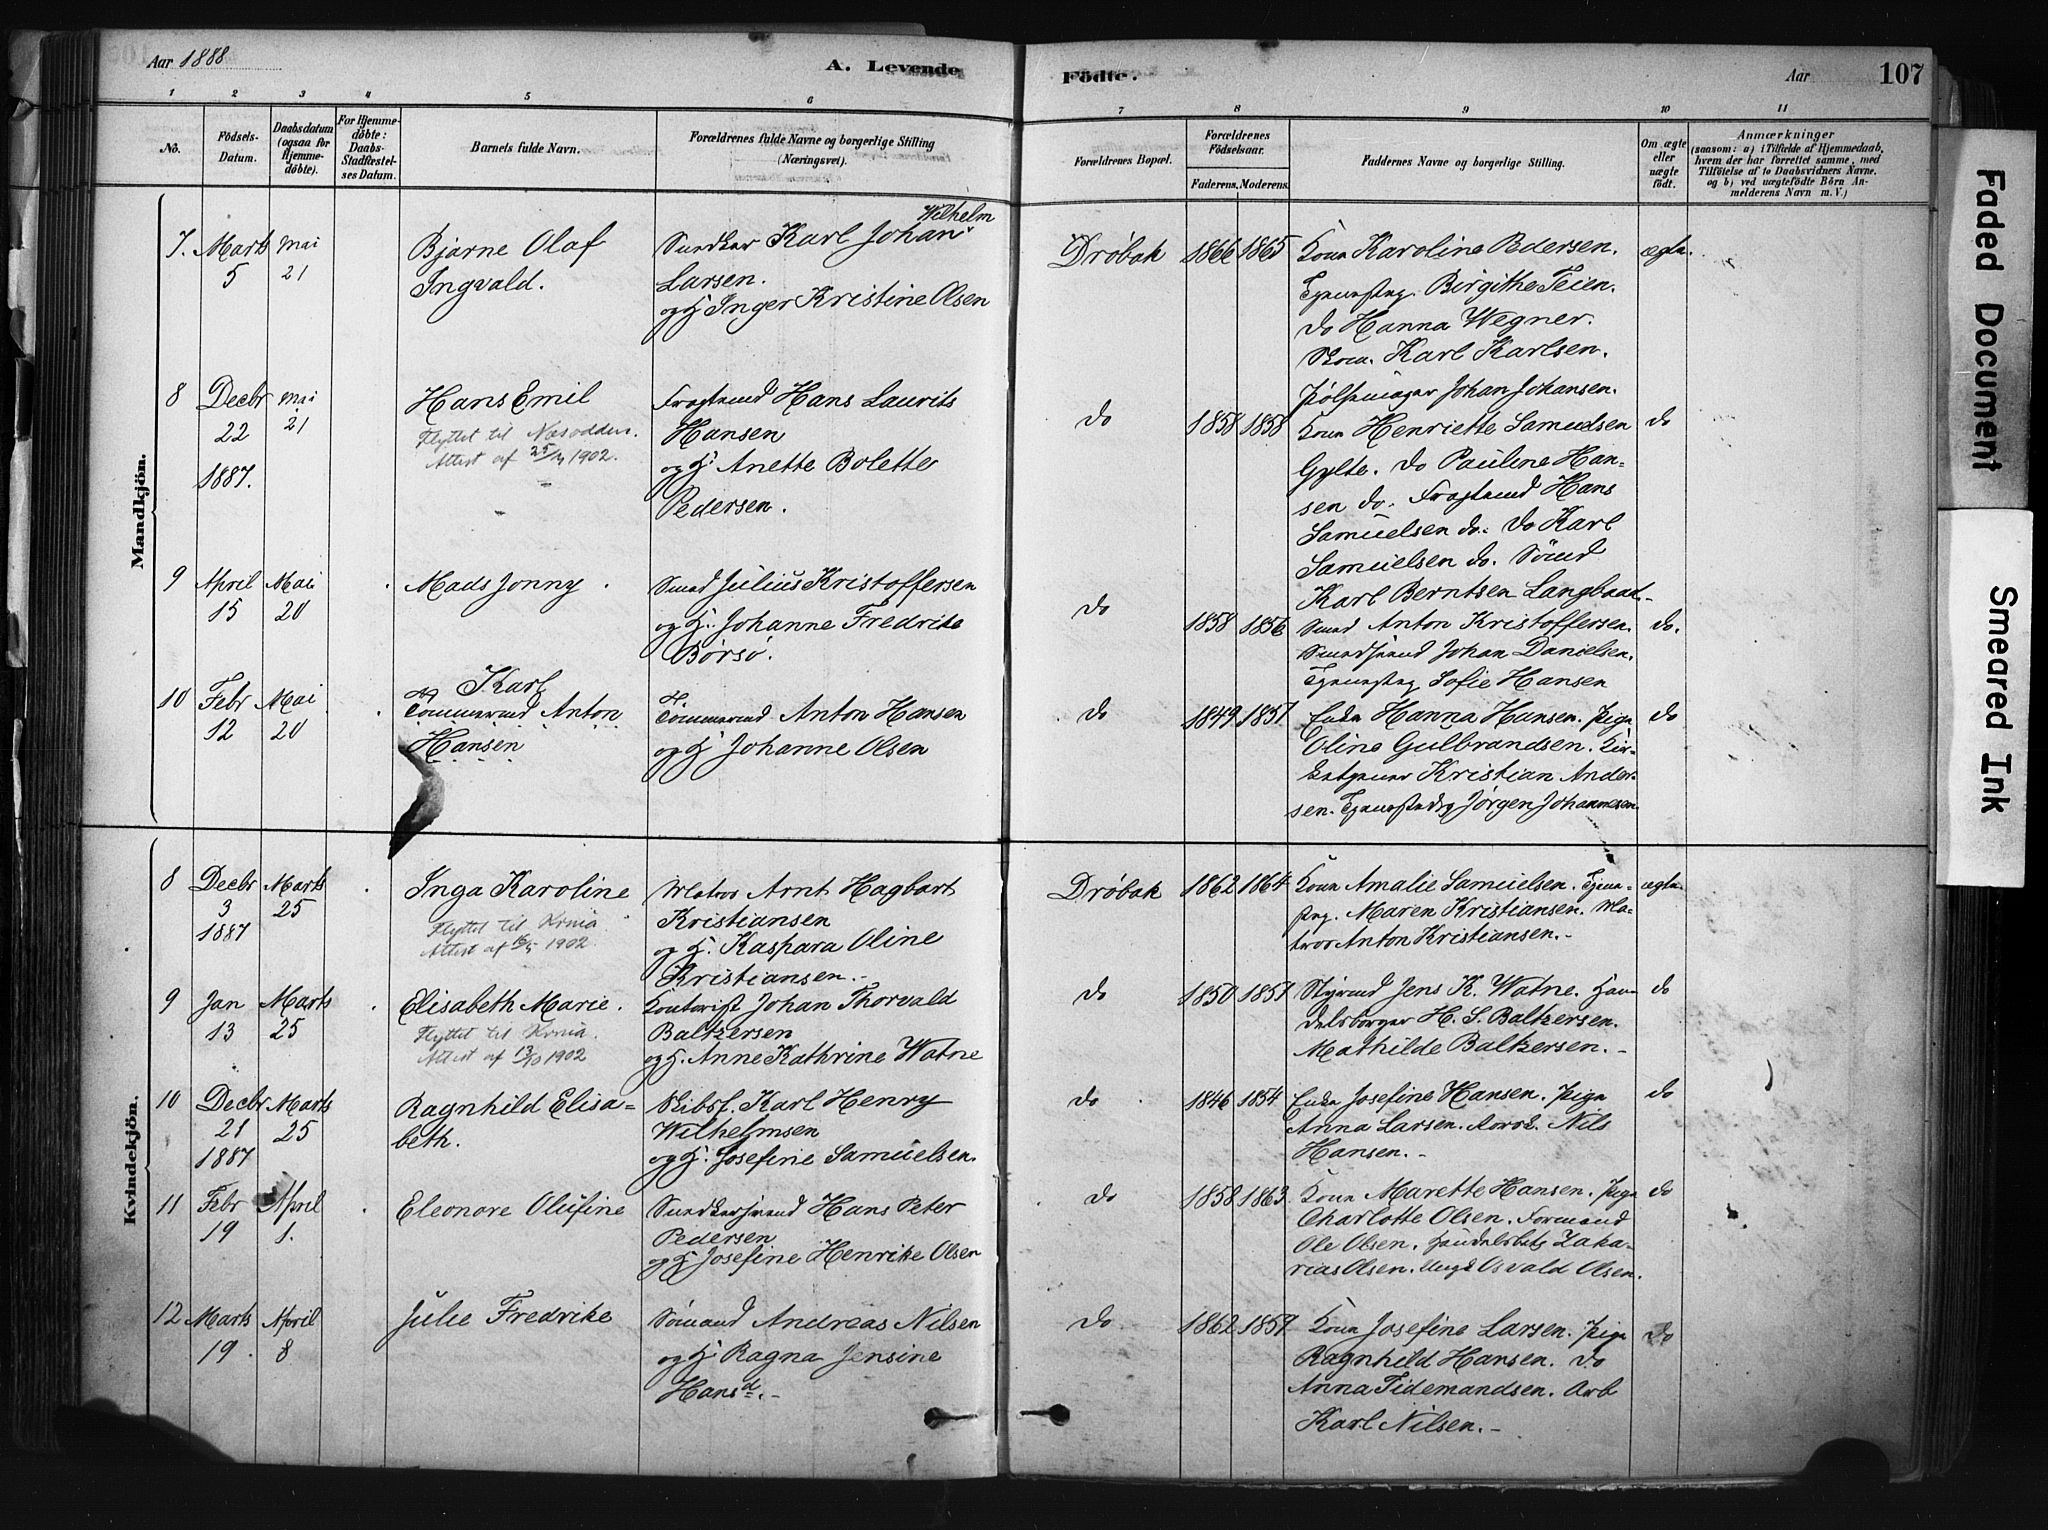 Aar 1888
A. Levende
Födte.
Aar
107
1 2 3 4 5 6 7 8 9 10 11
No.
Födsels-
Datum.
Daabsdatum
(ogsaa for
Hjemme-
döbte).
For Hjemme-
döbte:
Daabs-
Stadfæstel-
ses Datum.
Barnets fulde Navn.
Forældrenes fulde Navne og borgerlige Stilling
(Næringsvei).
Forældrenes Bopæl.
Forældrenes
Födselsaar.
Faderens. Moderens.
Faddernes Navne og borgerlige Stilling.
Om ægte
eller
uægte
födt.
Anmærkninger
(saasom: a) i Tilfælde af Hjemmedaab,
hvem der har forrettet samme, med
Tilföielse af to Daabsvidners Navne.
og b) ved uægtefödte Börn An-
melderens Navn m. V.)
Mandkjön.
7. Marts
5
Mai
21
Bjarne Olaf
Ingvald.
Wilhelm
Snedker Karl Johan
Larsen.
og H. Inger Kristine Olsen
Drøbak 1866 1865
Kone Karoline Pedersen.
Birgithe Teien.
do Hanna Wegner.
Karl Karlsen.
Pølsemager Johan Johansen.
ægte.
8 Decbr
22
1887.
Mai
21
Hans Emil
Flyttet til Næsodden.
Attest af 1902.
Fragtmd Hans Laurits
Hansen
og H. Anette Bolette
Pedersen.
do 1858 1858
Kone Henriette Samuelsen
Gylte. do Pauline Han-
sen do. Fragtmd Hans
Samuelsen do. do Karl
Samuelsen do. Sömd
Karl Berntsen Langbaat-
do
9 April
15
Mai
20
Mads Jonny.
Smed Julius Kristoffersen
og H. Johanne Fredrike
Børsø.
do 1858 1856
Smed Anton Kristoffersen.
Smedsvend Johan Danielsen.
Sofie Hansen
do.
10 Febr
12
Mai
20
Karl
Tømmermd Anton
Hansen
Tømmermd Anton Hansen
og H. Johanne Olsen
do 1849 1857
Enke Hanna Hansen. Pige
Oline Gulbrandsen. Kir-
ketjener Kristian Ander-
sen. Jørgen Johannesen.
do
Kvindekjön.
8 Decbr
3
1887
Marts
25
Inga Karoline
Flyttet til Krnia.
Attest af 1902
Matros Arnt Hagbart
Kristiansen
og H. Kaspara Oline
Kristiansen.-
Drøbak 1862 1864
Kone Amalie Samuelsen. Tjene-
Maren Kristiansen. Ma-
tros Anton Kristiansen.-
ægte
9 Jan
13
Marts
25
Elisabeth Marie.
Flyttet til Krnia.
Attest af 1902
Kontorist Johan Thorvald
Baltzersen
og H. Anne Kathrine Watne
do 1850 1857
Styrmd Jens K. Watne. Han-
delsborger H. S. Baltzersen.
Mathilde Baltzersen.-
do
10 Decbr
21
1887
Marts
25
Ragnhild Elisa-
beth.
Skibsf. Karl Henry
Wilhelmsen
og H. Josefine Samuelsen.
do 1846 1854
Enke Josefine Hansen. Pige
Anna Larsen. Nils
Hansen.-
do
11 Febr
19
April
1.
Eleonore Olufine
Snedkersvend Hans Peter
Pedersen
og H. Josefine Henrike Olsen
do 1858 1863
Kone Marette Hansen. Pige
Charlotte Olsen. Formand
Ole Olsen. Handelsbetj. Zaka-
rias Olsen. Ungk Osvald Olsen.
do
12 Marts
19.
April
8
Julie Fredrike
Sömand Andreas Nilsen
og H. Ragna Jensine
Hansd.-
do. 1862 1857
Kone Josefine Larsen. Pige
Ragnhild Hansen. do
Anna Tidemandsen. Arb
Karl Nilsen.-
do
Faded Document
Smeared Ink